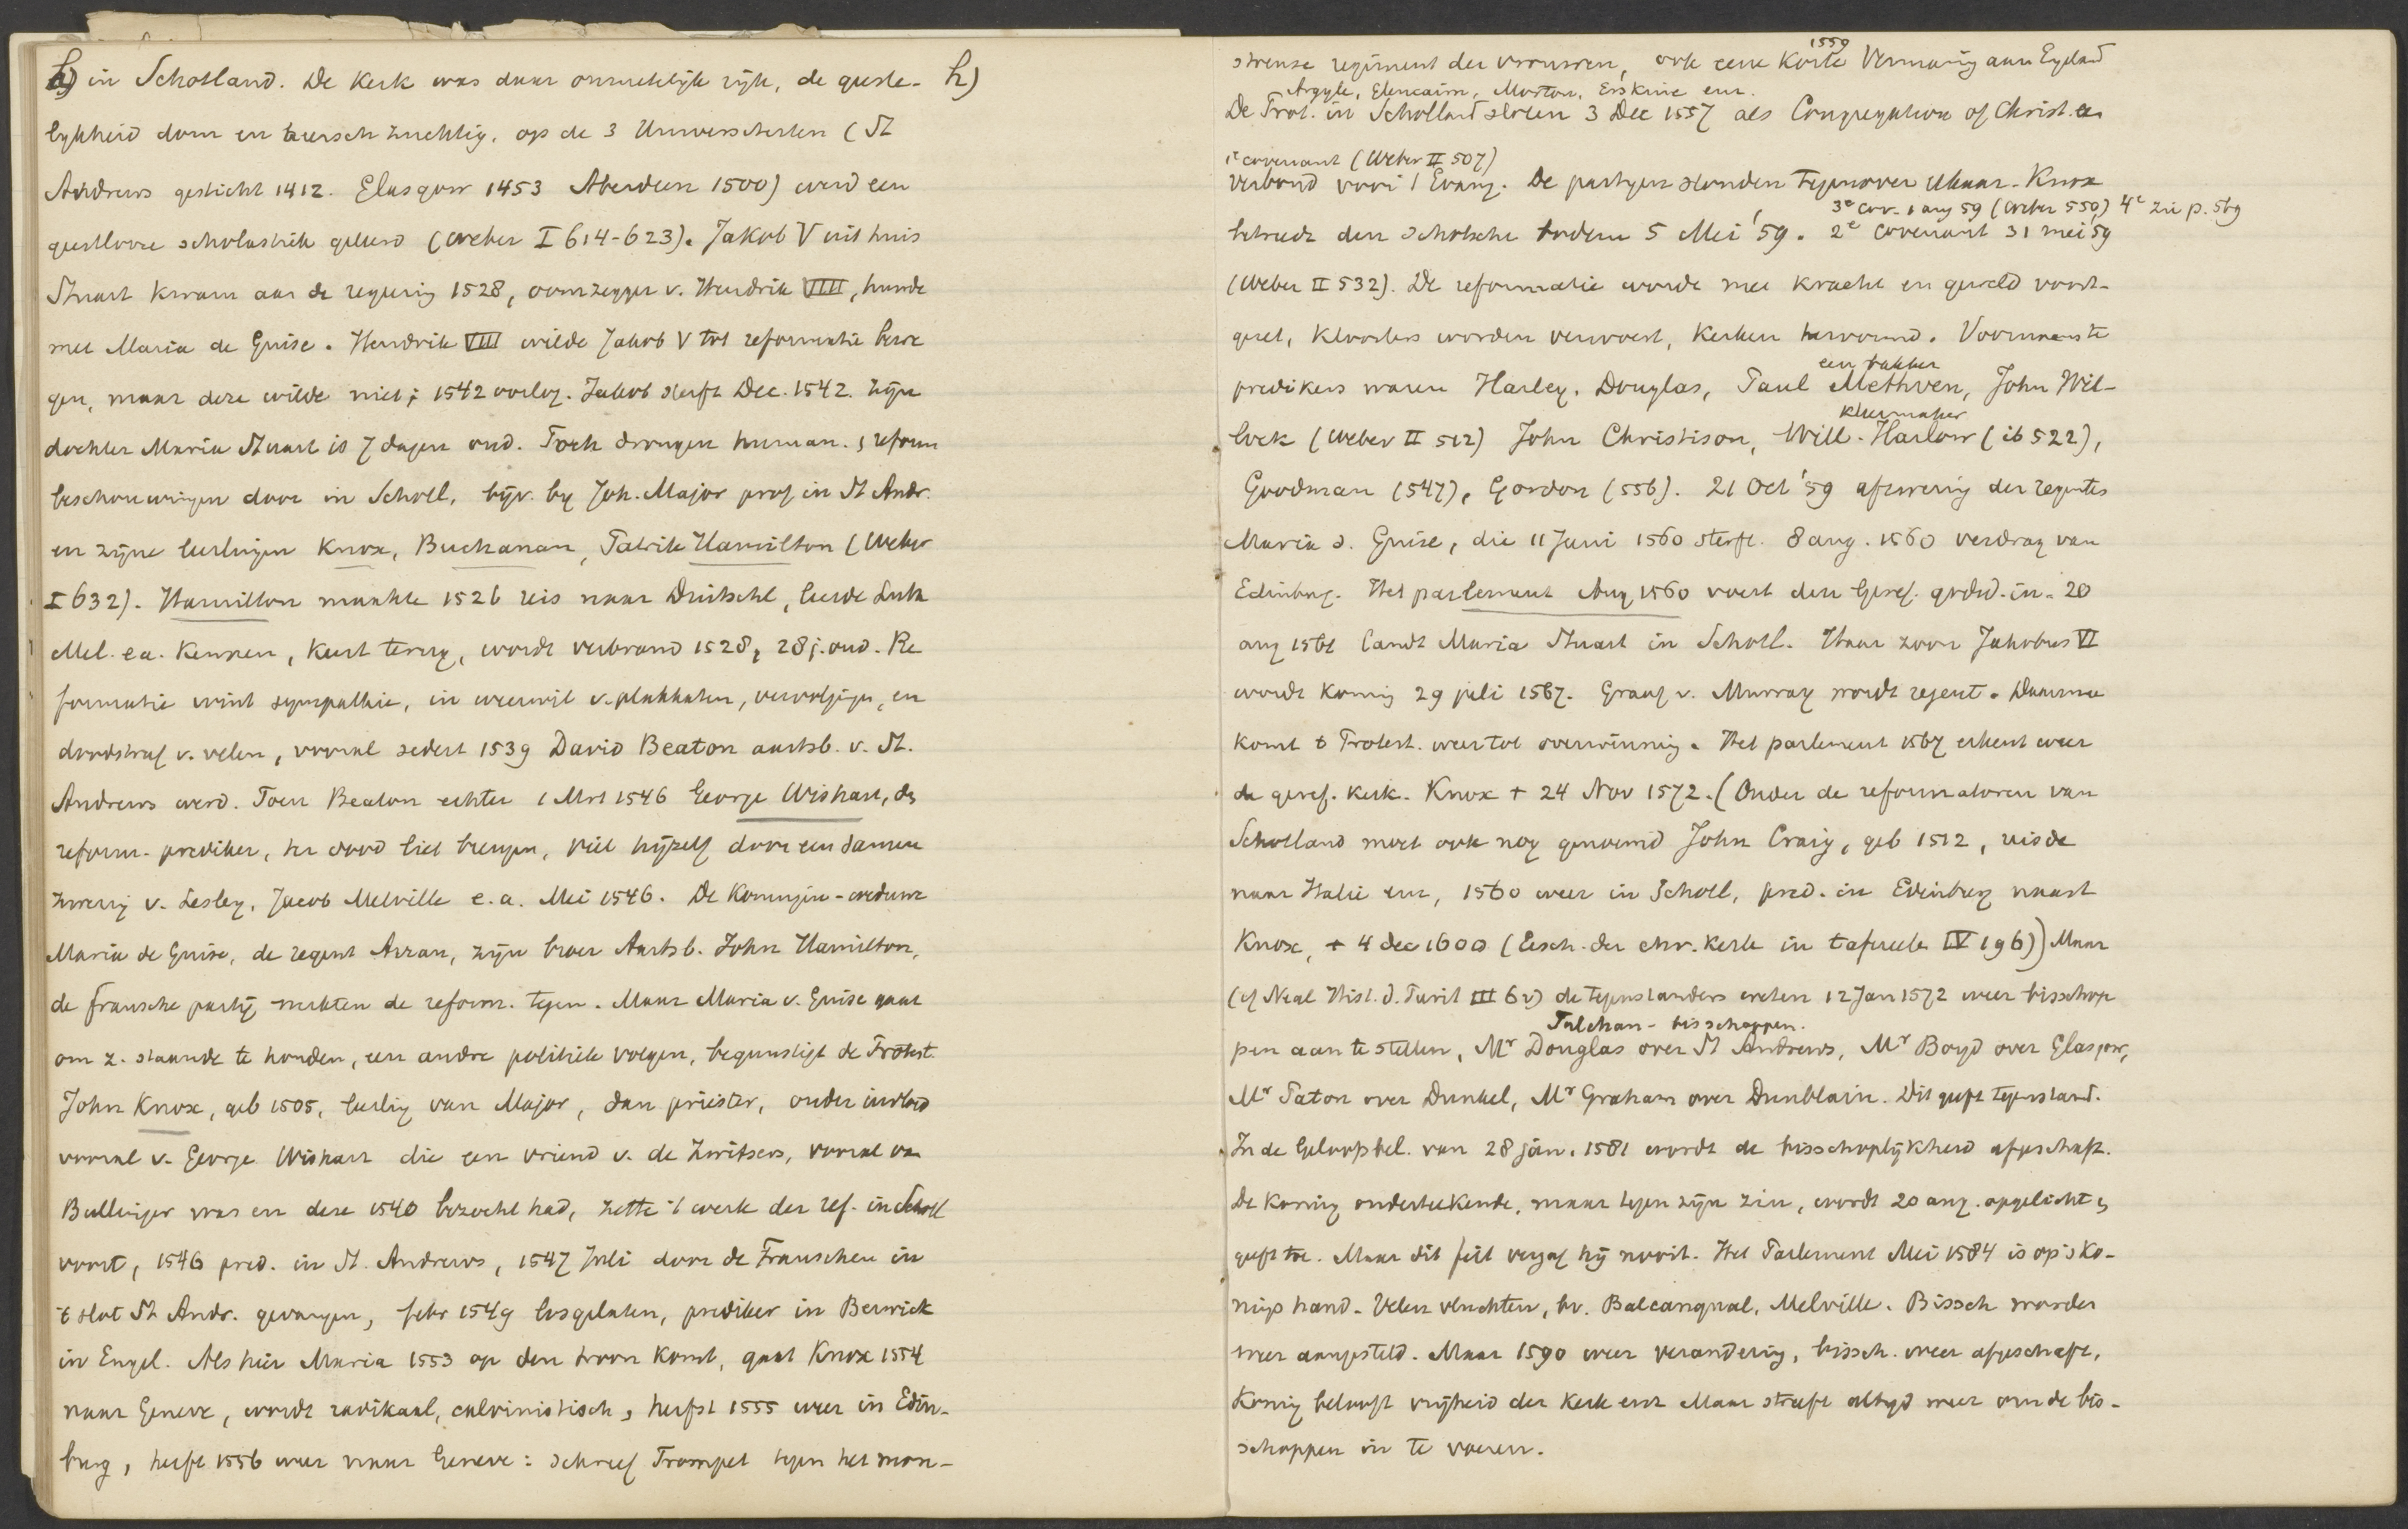 h) in Schotland. De kerk was daar onmetelijk rijk, de geeste- h)
lykheid dom en heersch zuchtig, op de 3 Universiteiten (St
Andrews gesticht 1412. Glasgow 1453 Aberdeen 1500) werd een
geestlooze scholastiek geleerd (Weber I 614-623). Jakob V uit huis
Stuart kwam aan de regering 1528, oomzegger v. Hendrik VIII, huwde
met Maria de Guise. Hendrik VIII wilde Jakob V tot reformatie bewe
gen, maar deze wilde niet; 1542 oorlog. Jakob sterft Dec. 1542. Zijn
dochter Maria Stuart is 7 dagen oud. Toch drongen human. & reform
beschouwingen door in Schotl, bijv. by Joh. Major prof in St Andr.
en zijne leerlingen Knox, Buchanan, Patrik Hamilton (Weber
I 632). Hamilton maakte 1526 reis naar Duitschl, leerde Luth
Mel. e.a. kennen, keert terug, wordt verbrand 1528, 28 j. oud. Re
formatie wint sympathie, in weerwil v. plakkaten, vervolgingen, en
doodstraf v. velen, vooral sedert 1539 David Beaton aartsb. v. St.
Andrews werd. Toen Beaton echter 1 Mrt 1546 George Wishart, de
reform. prediker, ter dood liet brengen, viel hijzelf door een samen
zwering v. Lesley, Jacob Melville e.a. Mei 1546. De Koningin-weduwe
Maria de Guise, de regent Arran, zijn broer Aartsb. John Hamilton,
de fransche partij werkten de reform. tegen. Maar Maria v. Guise gaat
om z. staande te houden, een andre politiek volgen, begunstigt de Protest.
John Knox, geb 1505, leerling van Major, dan priester, onder invloed
vooral v. George Wishart die een vriend v. de Zwitsers, vooral van
Bullinger was en deze 1540 bezocht had, zette 't werk der ref. in Schotl
voort, 1546 pred. in St. Andrews, 1547 Juli door de Franschen in
't slot St Andr. gevangen, febr 1549 losgelaten, prediker in Berwick
in Engel. Als hier Maria 1553 op den troon komt, gaat Knox 1554
naar Geneve, wordt radikaal, calvinistisch, herfst 1555 weer in Edin-
burg, herfst 1556 weer naar Geneve: schreef Trompet tegen het mon-
1559
strense regiment der vrouwen, ook eene Korte Vermaning aan Engeland
Argyle, Glencairn, Morton, Erskine enz.
De Prot. in Schotland sloten 3 Dec 1557 als Congregation of Christ een
1e covenant (Weber II 507)
verbond voor 't Evang. De partijen stonden tegenover elkaar. Knox
3e Cov. 1 aug 59 (Weber 550) 4e zie p. 569
betreedt den Schotsche bodem 5 Mei '59. 2e Covenant 31 mei 59
(Weber II 532). De reformatie wordt met kracht en geweld voort-
gezet, kloosters worden verwoest, kerken hervormd. Voornaamste
een bakker
predikers waren Harley, Douglas, Paul Methven, John Wil-
kleermaker
lock (Weber II 512) John Christison, Will. Harlow (ib 522),
Goodman (547), Gordon (556). 21 Oct '59 afzwering der regentes
Maria d. Guise, die 11 Juni 1560 sterft. 8 aug. 1560 verdrag van
Edinburg. Het parlement Aug 1560 voert den Geref. gdsd. in. 20
aug 1561 landt Maria Stuart in Schotl. Haar zoon Jakobus VI
wordt koning 29 juli 1567. Graaf v. Murray wordt regent. Daarmee
komt 't Protest. weer tot overwinning. Het parlement 1567 erkent weer
de geref. kerk. Knox + 24 Nov 1572. (Onder de reformatoren van
Schotland moet ook nog genoemd John Craig, geb 1512, reisde
naar Italie enz, 1560 weer in Schotl, pred. in Edinburg naast
Knox, + 4 dec 1600 (Gesch. der chr. kerk in tafereelen IV 196)) Maar
(cf Neal Hist. d. Purit III 62) de tegenstanders weten 12 Jan 1572 weer bisschop
Tulchan - bisschoppen.
pen aan te stellen, Mr Douglas over St Andrews, Mr Boyd over Glasgow,
Mr Paton over Dunkel, Mr Graham over Dunblain. Dit geeft tegenstand.
In de Geloofsbel. van 28 jan. 1581 wordt de bisschoplijkheid afgeschaft.
De koning onderteekende, maar tegen zijn zin, wordt 20 aug. opgelicht &
geeft toe. Maar dit feit vergaf hij nooit. Het Parlement Mei 1584 is op 's ko-
nings hand. Velen vluchten, bv. Balcanqual, Melville. Bissch worden
weer aangesteld. Maar 1590 weer verandering, bissch. weer afgeschaft,
Koning belooft vrijheid der kerk enz Maar streeft altijd weer om de bis-
schoppen in te voeren.